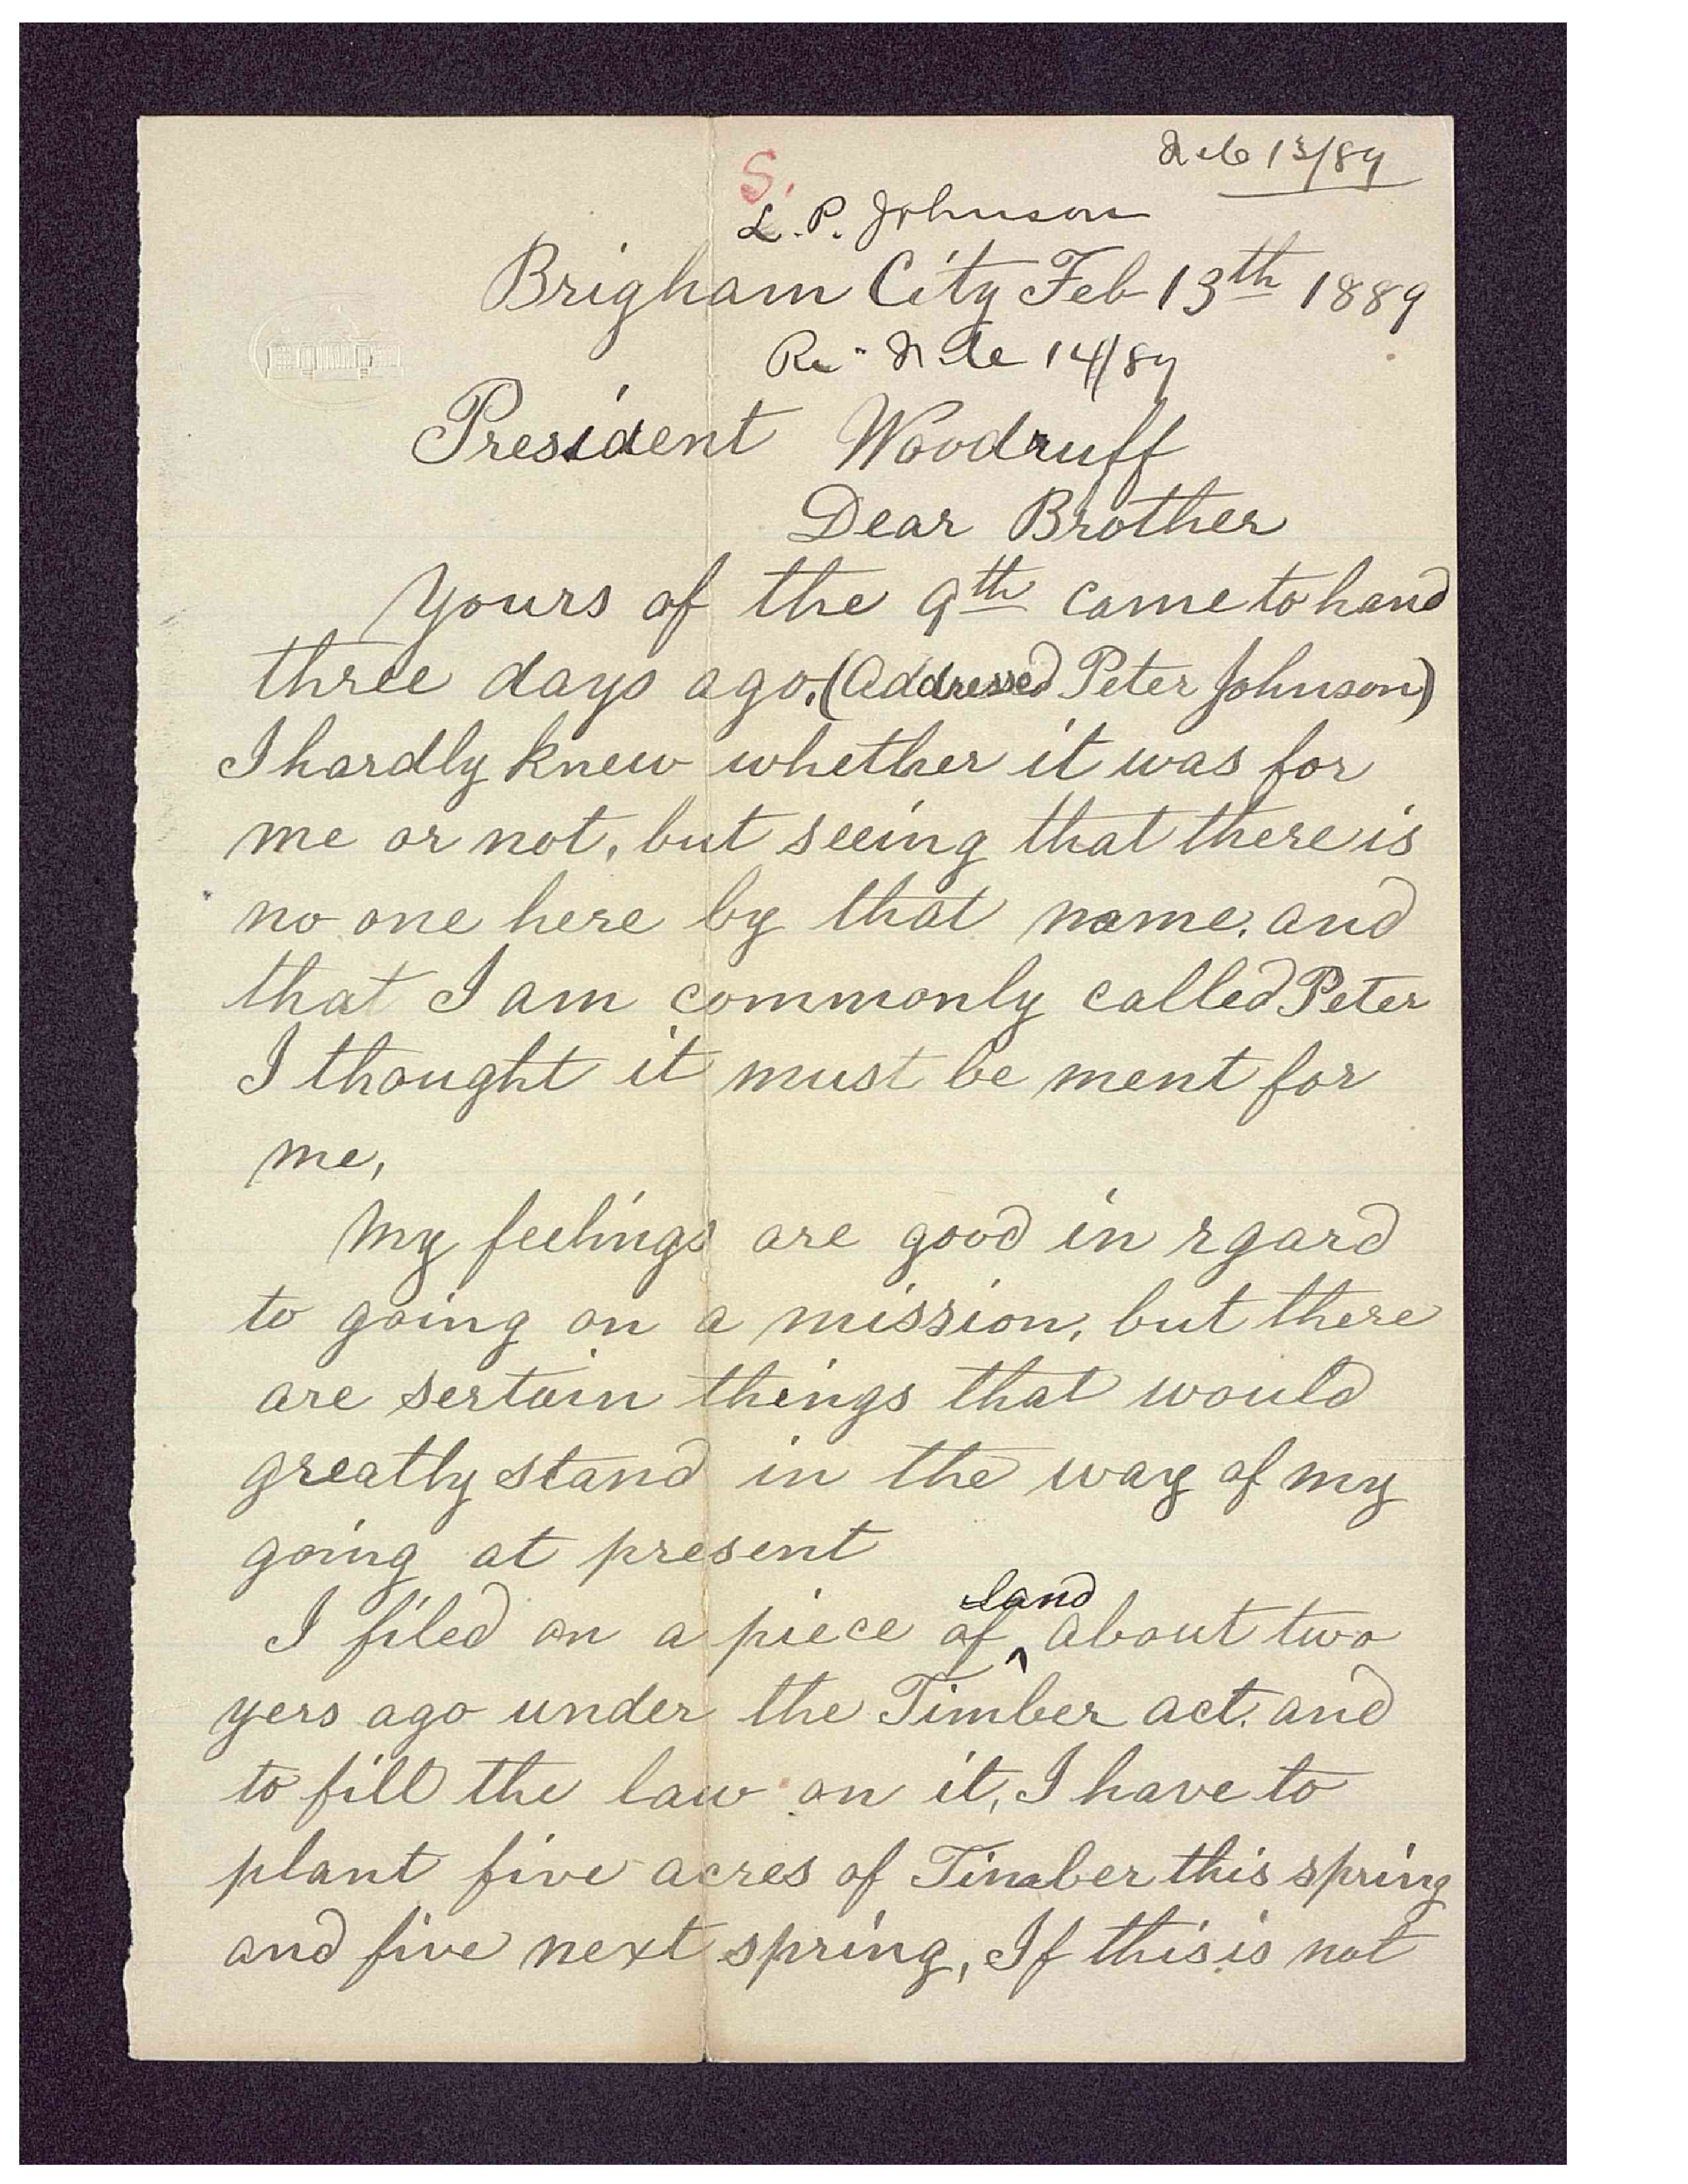 Feb 13/89
S.
L. P. Johnson
Brigham City Feb 13th 1889
Feb 14/89
President Woodruff
Dear Brother
Yours of the 9th came to hand
three days ago. (Addressed Peter Johnson)
I hardly knew whether it was for
me or not, but seeing that there is
no one here by that name. and
that I am commonly called Peter
I thought it must be ment for
me,
My feelings are good in rgard
to going on a mission, but there
are sertain things that would
greatly stand in the way of my
going at present
I filed on a piece of land about two
yers ago under the Timber act. and
to fill the law on it, I have to
plant five acres of Timber this spring
and five next spring, If this is not